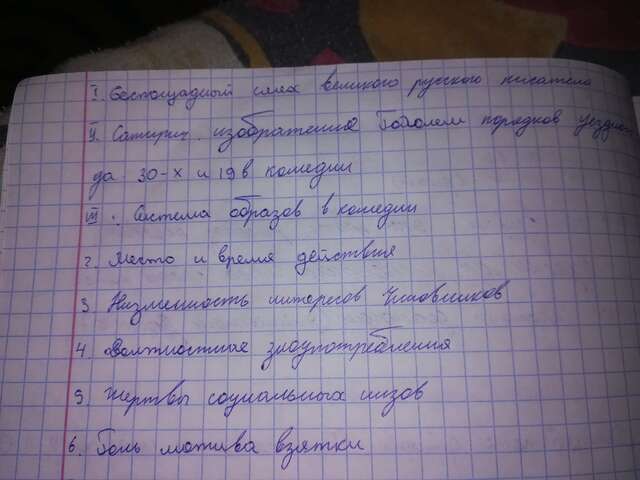 I. Беспощадный смех великого русского писателя
II. Сатирич. изображение Гоголем порядков уездно
да 30-х и 19 в комедии
III. Система образов в комедии
2. Место и время действия
3 Низменность интересов чиновников
4 Должностные злоупотребления
5. Жертвы социальных низов
6. Боль мотива взятки